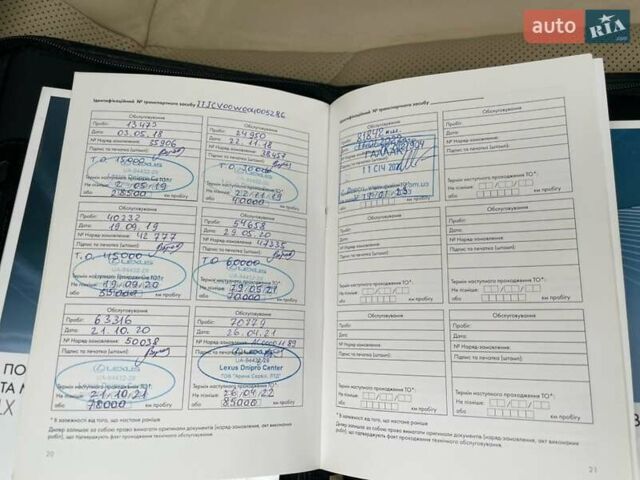 auto RIA .com
Ідентифікаційний № транспортного засобу JTJCV00W004005286
Обслуговування
Пробіг: 13475
Дата: 03.05.18
№ Наряд-замовлення: 35906
Підпис та печатка (штамп):
Т.О. 15,000
LEXUS
UA-94432-29
Термін наступного проходження ТО*:
Не пізніше: 2.05.19
або 28500 км пробігу
Обслуговування
Пробіг: 24950
Дата: 22.11.18
№ Наряд-замовлення: 38457
Підпис та печатка (штамп):
Т.О. 30000
LEXUS
Термін наступного проходження ТО*:
Не пізніше: 22.11.19
або 40000 км пробігу
Обслуговування
Пробіг: 40232
Дата: 19.09.19
№ Наряд-замовлення: 42777
Підпис та печатка (штамп):
Т.О. 45000
LEXUS
UA-94432-29
Термін наступного проходження ТО*:
Не пізніше: 19.09.20
або 55000 км пробігу
Обслуговування
Пробіг: 54658
Дата: 29.05.20
№ Наряд-замовлення: 47335
Підпис та печатка (штамп):
Т.О. 60000
LEXUS
UA-94432-29
Термін наступного проходження ТО*:
Не пізніше: 29.05.21
або 70000 км пробігу
Обслуговування
Пробіг: 63316
Дата: 21.10.20
№ Наряд-замовлення: 50038
Підпис та печатка (штамп):
LEXUS
UA-94432-29
Термін наступного проходження ТО*:
Не пізніше: 21.10.21
або 78000 км пробігу
Обслуговування
Пробіг: 70779
Дата: 26.04.21
№ Наряд-замовлення:
Підпис та печатка (штамп):
LEXUS
UA-94432-29
Lexus Dnipro Center
Термін наступного проходження ТО*:
Не пізніше: 26.04.22
або 85000 км пробігу
* В залежності від того, що настане раніше
Дилер залишає за собою право вимагати оригінали документів (наряд-замовлення, акт виконаних
робіт), що підтверджують факт проходження технічного обслуговування.
20
Ідентифікаційний № транспортного засобу
Обслуговування
81842
11 СІЧ
Обслуговування
Пробіг:
Дата:
№ Наряд-замовлення:
Підпис та печатка (штамп):
Термін наступного проходження ТО*:
Не пізніше:
або км пробігу
Обслуговування
Пробіг:
Дата:
№ Наряд-замовлення:
Підпис та печатка (штамп):
Термін наступного проходження ТО*:
Не пізніше:
або км пробігу
Обслуговування
Пробіг:
Дата:
№ Наряд-замовлення:
Підпис та печатка (штамп):
Термін наступного проходження ТО*:
Не пізніше:
або км пробігу
Обслуговування
Пробіг:
Дата:
№ Наряд-замовлення:
Підпис та печатка (штамп):
Термін наступного проходження ТО*:
Не пізніше:
або км пробігу
Обслуговування
Пробіг:
Дата:
№ Наряд-замовлення:
Підпис та печатка (штамп):
Термін наступного проходження ТО*:
Не пізніше:
або км пробігу
* В залежності від того, що настане раніше
Дилер залишає за собою право вимагати оригінали документів (наряд-замовлення, акт виконаних
робіт), що підтверджують факт проходження технічного обслуговування.
21
ПО
ТА
LX